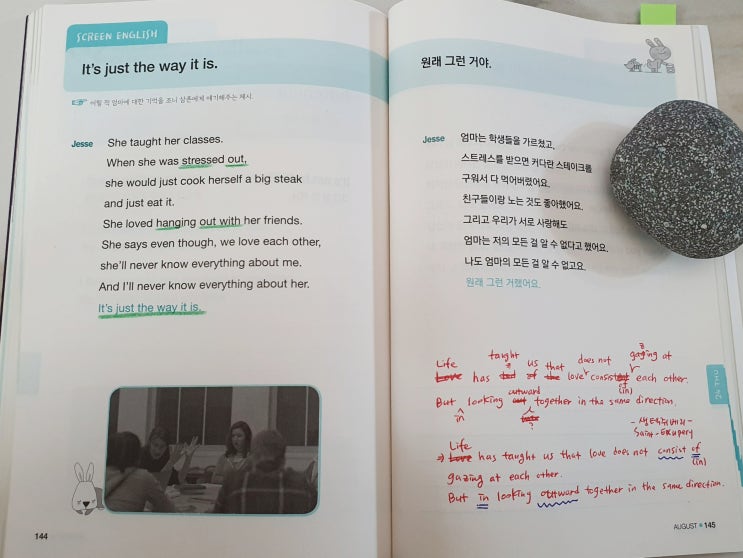 SCREEN ENGLISH
It's just the way it is.
어릴 적 엄마에 대한 기억을 조니 삼촌에게 얘기해주는 제시.
Jesse She taught her classes.
When she was stressed out,
she would just cook herself a big steak
and just eat it.
She loved hanging out with her friends.
She says even though, we love each other,
she'll never know everything about me.
And I'll never know everything about her.
It's just the way it is.
144
원래 그런 거야.
Jesse 엄마는 학생들을 가르쳤고,
스트레스를 받으면 커다란 스테이크를
구워서 다 먹어버렸어요.
친구들이랑 노는 것도 좋아했어요.
그리고 우리가 서로 사랑해도
엄마는 저의 모든 걸 알 수 없다고 했어요.
나도 엄마의 모든 걸 알 수 없고요.
원래 그런 거랬어요.
24 THU
Life taught us that does not gazing at
Love has of the love consist each other.
of
(in)
outward
But looking out together in the same direction.
in
- 생텍쥐베리 -
Saint-Exupery
Life
⇒ Love has taught us that love does not consist of
(in)
gazing at each other.
But in looking outward together in the same direction.
AUGUST 145